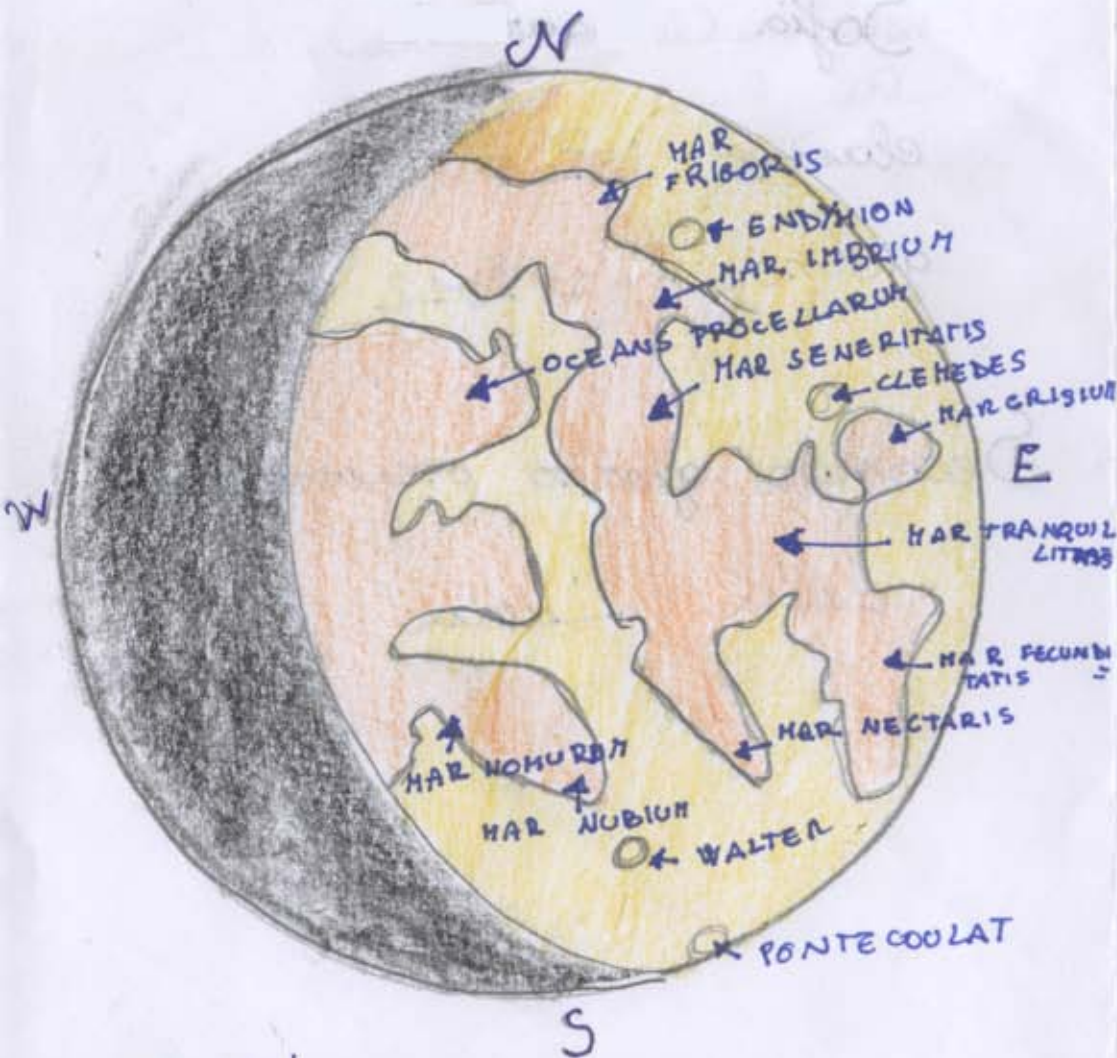 N
MAR
FRIGORIS
ENDYMION
MAR IMBRIUM
OCEANS PROCELLARUM
MAR SENERITATIS
CLEMEDES
MAR CRISIUM
E
W
MAR TRANQUIL
LITATIS
MAR FECUNDI
TATIS
MAR NECTARIS
MAR HOMURBM
MAR NUBIUM
WALTER
PONTECOULAT
S